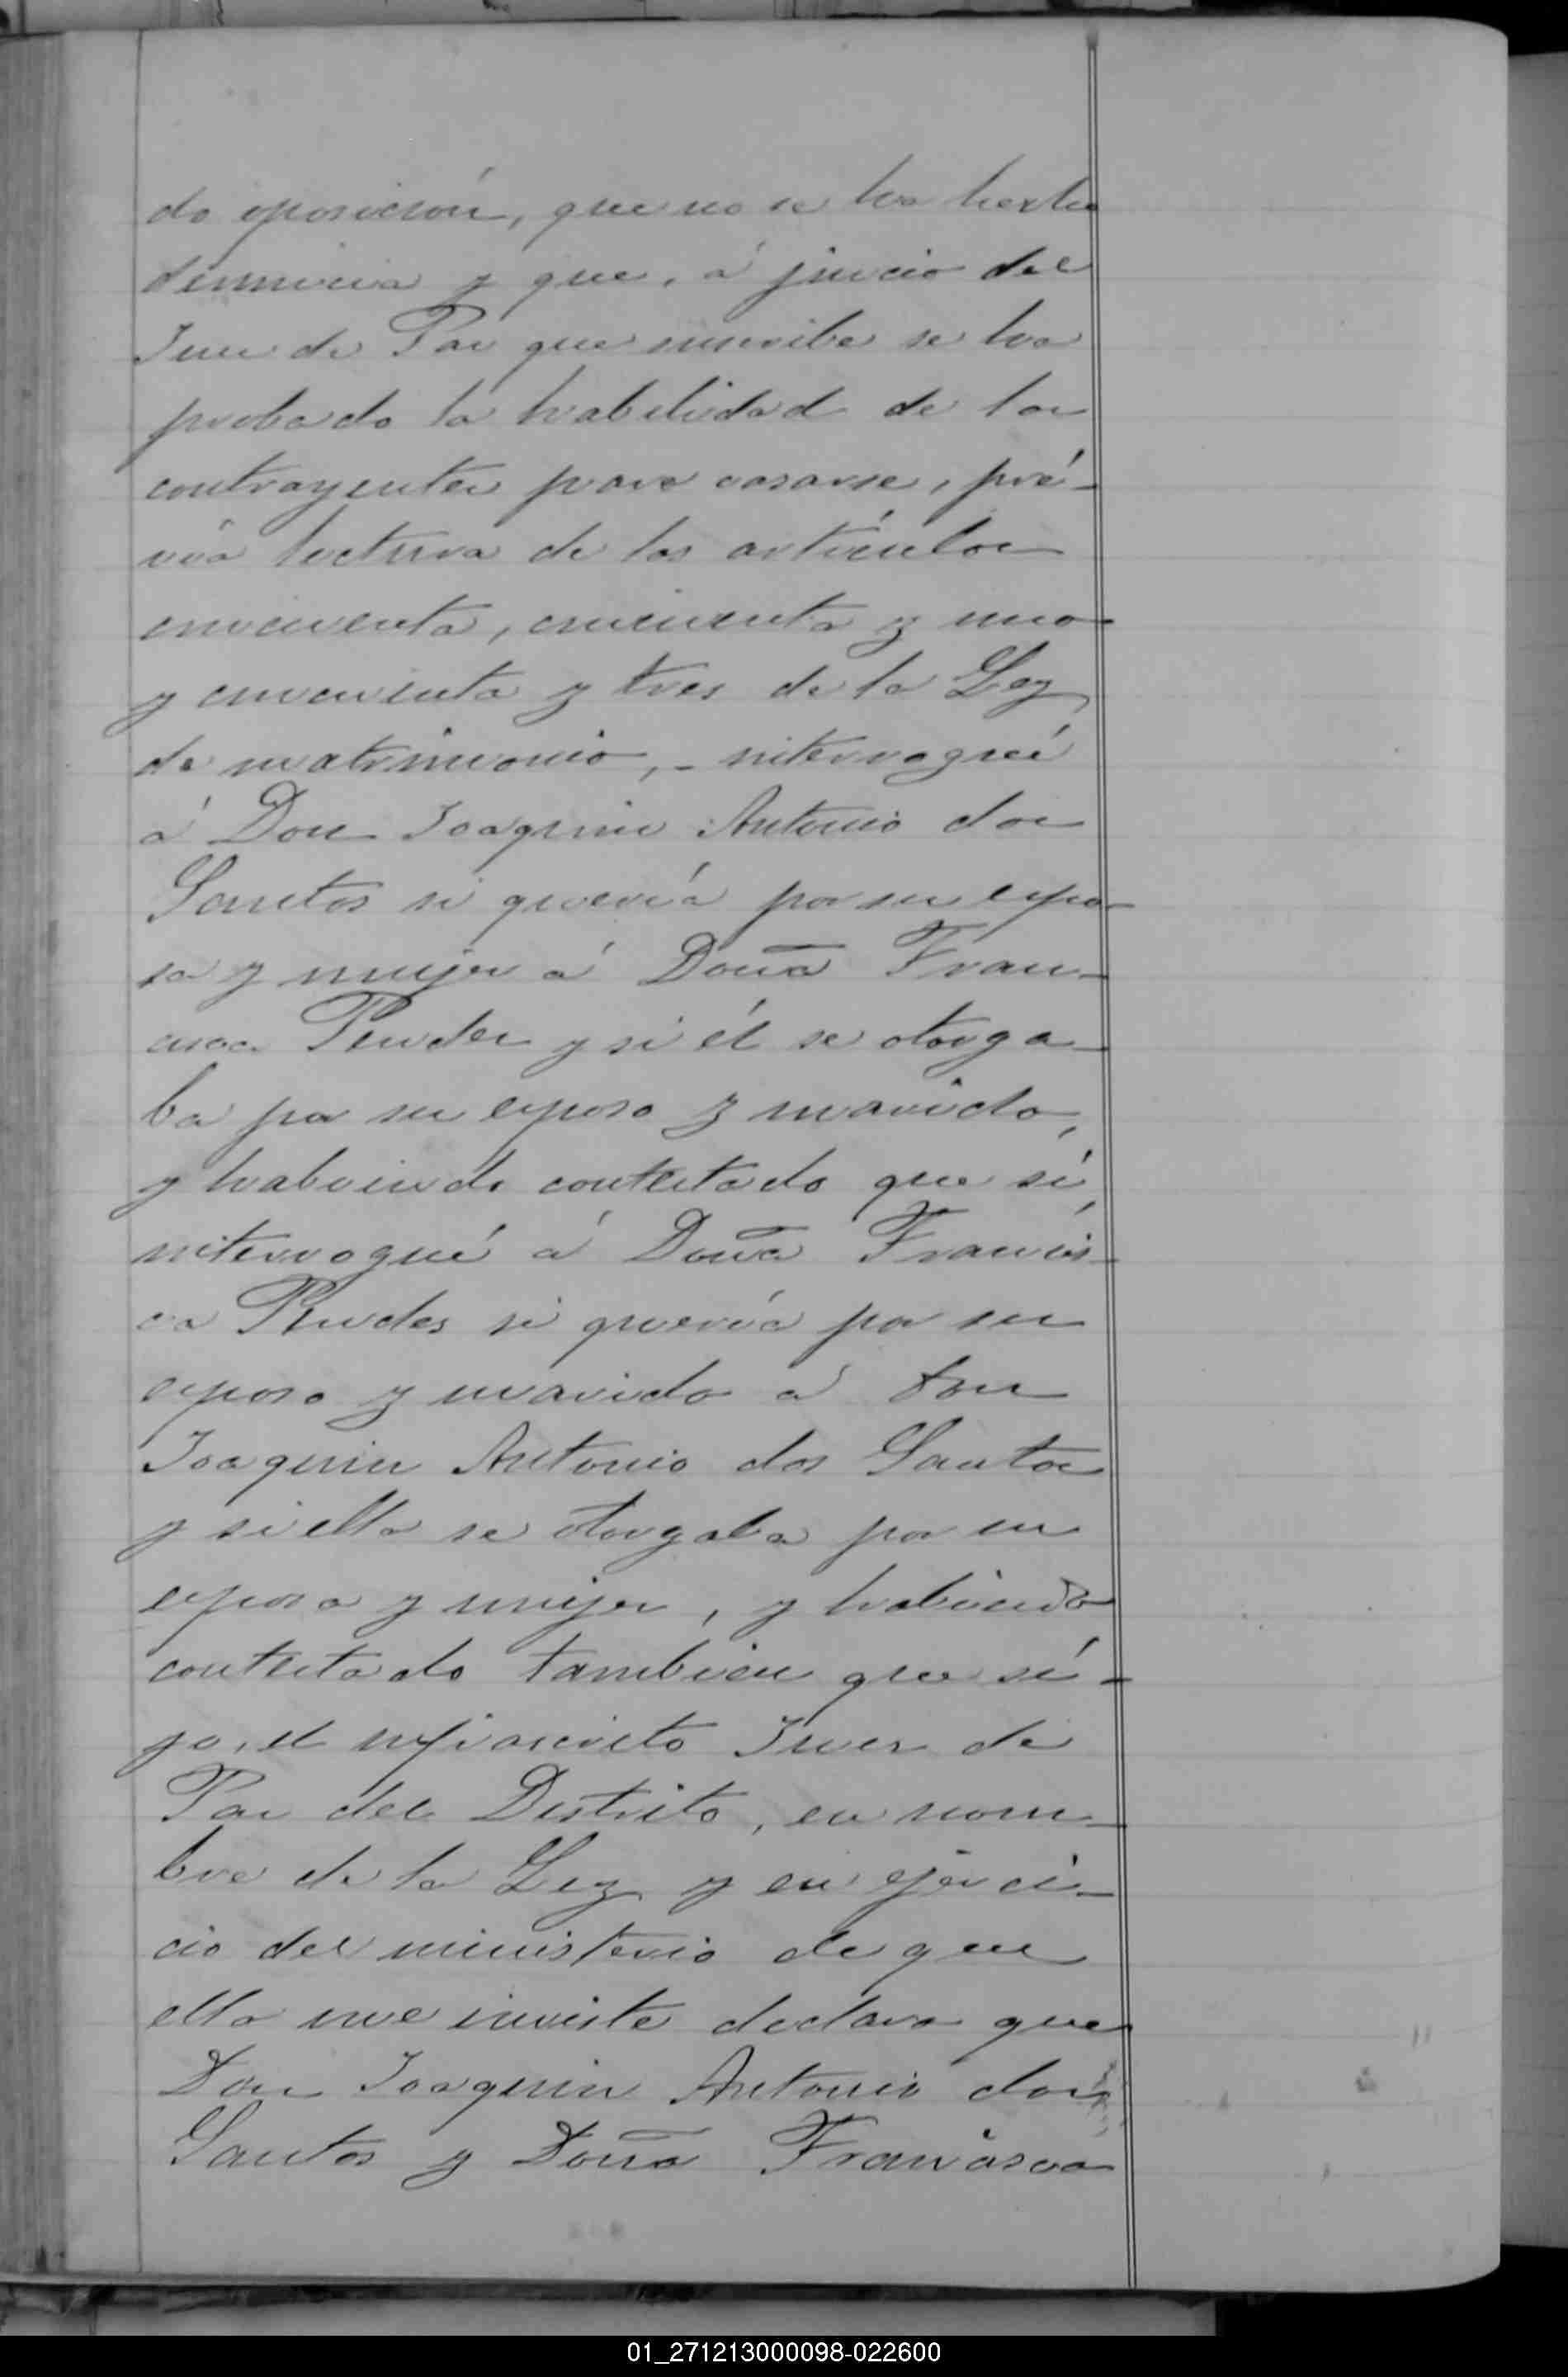 do oposición, que no se ha hecho
denuncia y que, á juicio del
Juez de Paz que suscribe se ha
probado la habilidad de los
contrayentes para casarse, pré-
via lectura de los artículos
cincuenta, cincuenta y uno
y cincuenta y tres de la Ley
de matrimonio, - interrogué
á Don Joaquin Antonio dos
Santos si quería por su espo-
sa y mujer á Doña Fran-
cisca Prudes y si él se otorga-
ba por su esposo y marido,
y habiendo contestado que sí,
interrogué á Doña Francis-
ca Prudes si quería por su
esposo y marido á Don
Joaquin Antonio dos Santos
y si ella se otorgaba por su
esposa y mujer, y habiendo
contestado tambien que sí-
yo, el infrascrito Juez de
Paz del Distrito, en nom-
bre de la Ley y en ejerci-
cio del ministerio de que
ella me inviste declaro que
Don Joaquin Antonio dos
Santos y Doña Francisca
01_271213000098-022600